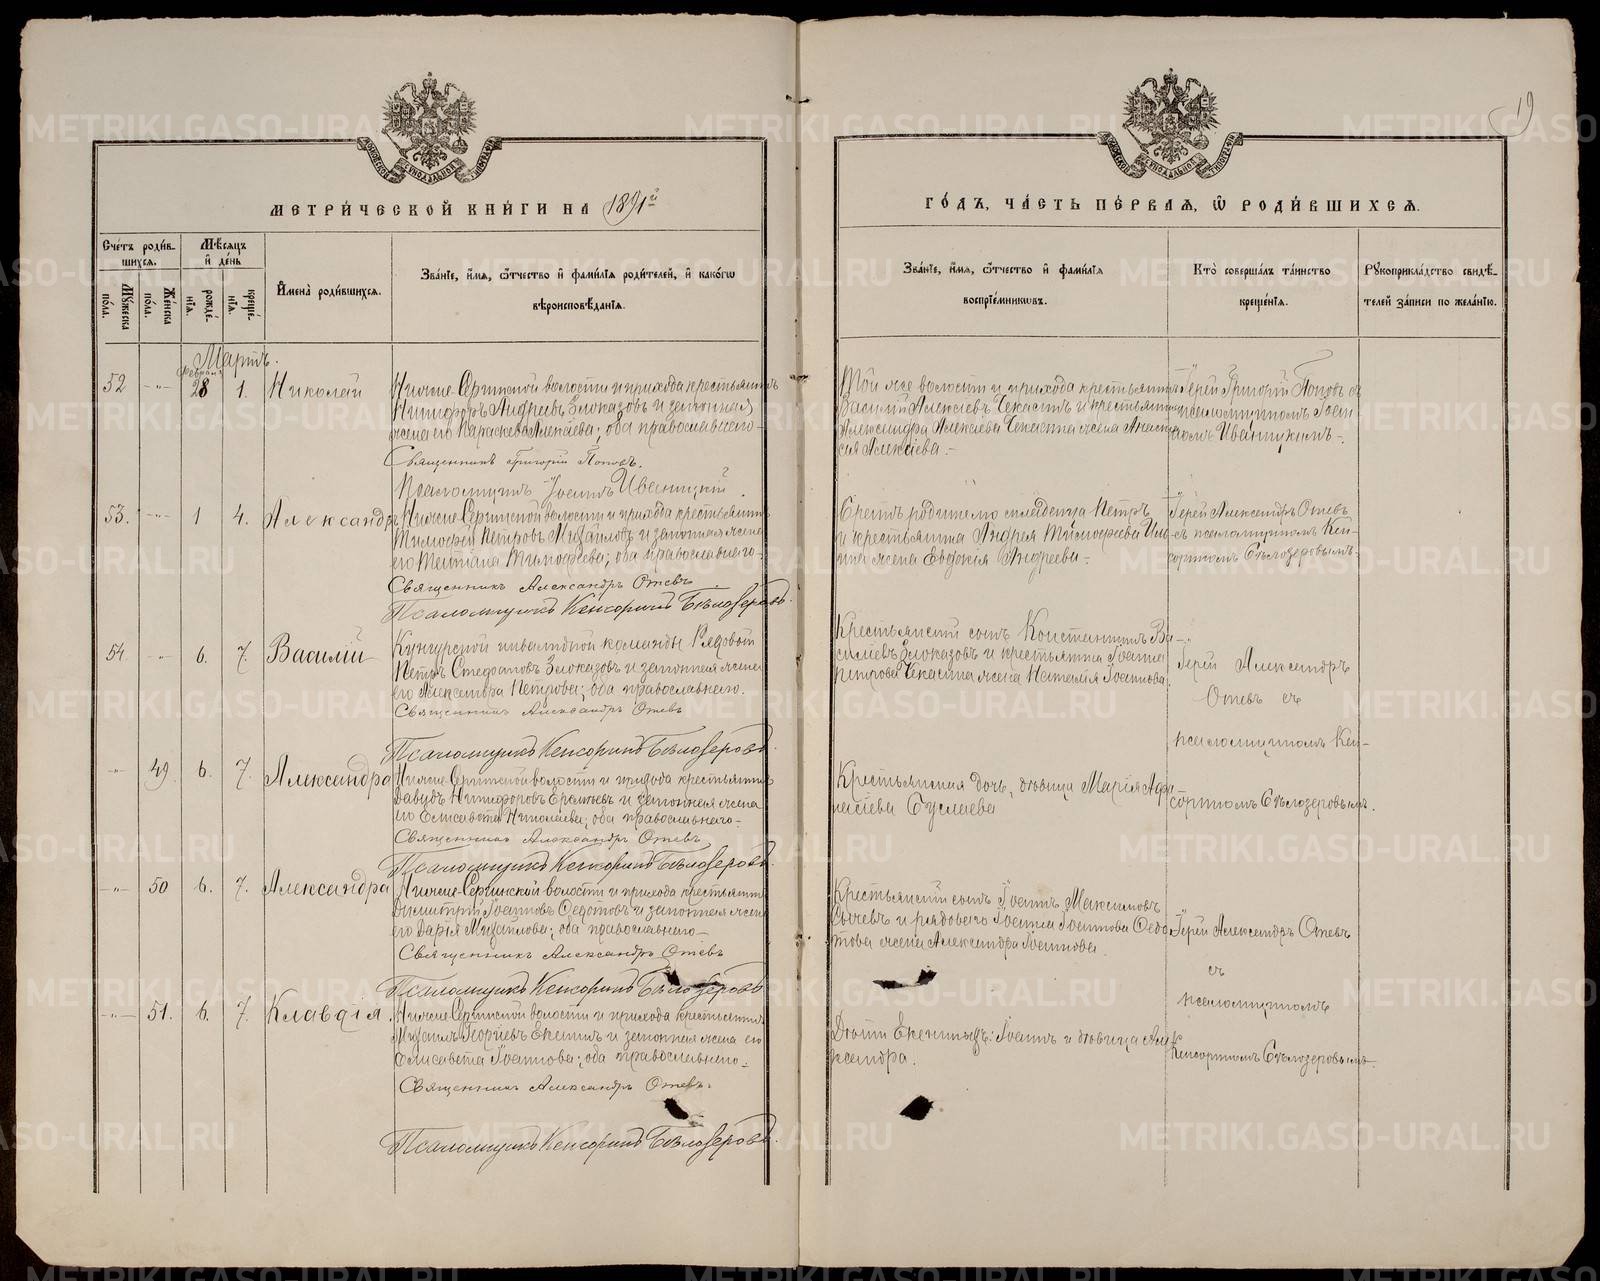 19
МЕТРИ́ЧЕСКОЙ КНИ́ГИ НА 1891й
ГО́ДЪ, ЧА́СТЬ ПЕ́РВАЯ, Ѿ РОДИ́ВШИХСЯ.
Сче́тъ роди́в-
шихся.
Мѣ́сяцъ
и́ де́нь
Му́жеска
по́ла.
Же́нска
по́ла.
рожде́-
нїя.
креще́-
нїя.
И҆мена̀ роди́вшихся.
Зва́нїе, и҆́мя, ѻ҆́тчество и҆ фами́лїя роди́телей, и҆ како́гѡ
вѣроисповѣ́данїя.
Зва́нїе, и҆́мя, ѻ҆́тчество и҆ фами́лїя
воспрїе́мниковъ.
Кто̀ соверша́лъ та́инство
креще́нїя.
Рꙋкоприкла́дство свидѣ́-
телей за́писи по жела́нїю.
Мартъ.
Февраля
52 -"- 28 1. Николай
Нижне-Сергинской волости и прихода крестьянинъ
Никифоръ Андреевъ Злоказовъ и законная
жена его Параскева Алексіева; оба православнаго.-
Священникъ Григорій Поповъ.
Псаломщикъ Іоаннъ Иваницкій.
Той же волости и прихода крестьянинъ
Василій Алексіевъ Чекасинъ и крестьянина
Александра Алексіева Чекасина жена Анаста-
сія Алексіева.-
Іерей Григорій Поповъ съ
псаломщикомъ Іоан-
номъ Иваницкимъ.-
53. -"- 1 4. Александръ
Нижне-Сергинской волости и прихода крестьянинъ
Тимофей Петровъ Михайловъ и законная жена
его Татіана Тимофеева; оба православнаго.-
Священникъ Александръ Отевъ
Псаломщикъ Кенсоринъ Бѣлозеровъ.
и крестьянина Андрея Тимофеева
жена Евдокія Андреева.-
Іерей Александръ Отевъ
съ псаломщикомъ Кен-
сориномъ Бѣлозеровымъ.
54. -"- 6. 7. Василій
Кунгурской инвалидной команды Рядовой
Петръ Стефановъ Злоказовъ и законная жена
его Александра Петрова; оба православнаго.
Священникъ Александръ Отевъ
Псаломщикъ Кенсоринъ Бѣлозеровъ.
Крестьянскій сынъ Константинъ Ва-
силіевъ Злоказовъ и крестьянина Іоанна
Петрова Чекасина жена Наталія Іоаннова.
Іерей Александръ
Отевъ съ
псаломщикомъ Кен-
сориномъ Бѣлозеровымъ.
-"- 49. 6. 7. Александра
Нижне-Сергинской волости и прихода крестьянинъ
Давидъ Никифоровъ и законная жена
его Елисавета Николаева; оба православнаго.-
Священникъ Александръ Отевъ
Псаломщикъ Кенсоринъ Бѣлозеровъ.
Крестьянская дочь, дѣвица Марія Афа-
насіева Суслаева
-"- 50 6. 7. Александра
Нижне-Сергинской волости и прихода крестьянинъ
Димитрій Іоанновъ Федотовъ и законная жена
его Дарья Михайлова; оба православнаго.-
Священникъ Александръ Отевъ
Псаломщикъ Кенсоринъ Бѣлозеровъ
Крестьянскій сынъ Іоаннъ Максимовъ
Сычевъ и рядового Іоанна Іоаннова Федо-
това жена Александра Іоаннова.
Іерей Александръ Отевъ
съ
псаломщикомъ
Кенсориномъ Бѣлозеровымъ.-
-"- 51. 6. 7. Клавдія.
Нижне-Сергинской волости и прихода крестьянинъ
Михаилъ Георгіевъ Екенинъ и законная жена его
Елисавета Іоаннова; оба православнаго.-
Священникъ Александръ Отевъ.
Псаломщикъ Кенсоринъ Бѣлозеровъ.
Дѣти Екениныхъ: Іоаннъ и дѣвица Але-
ксандра.